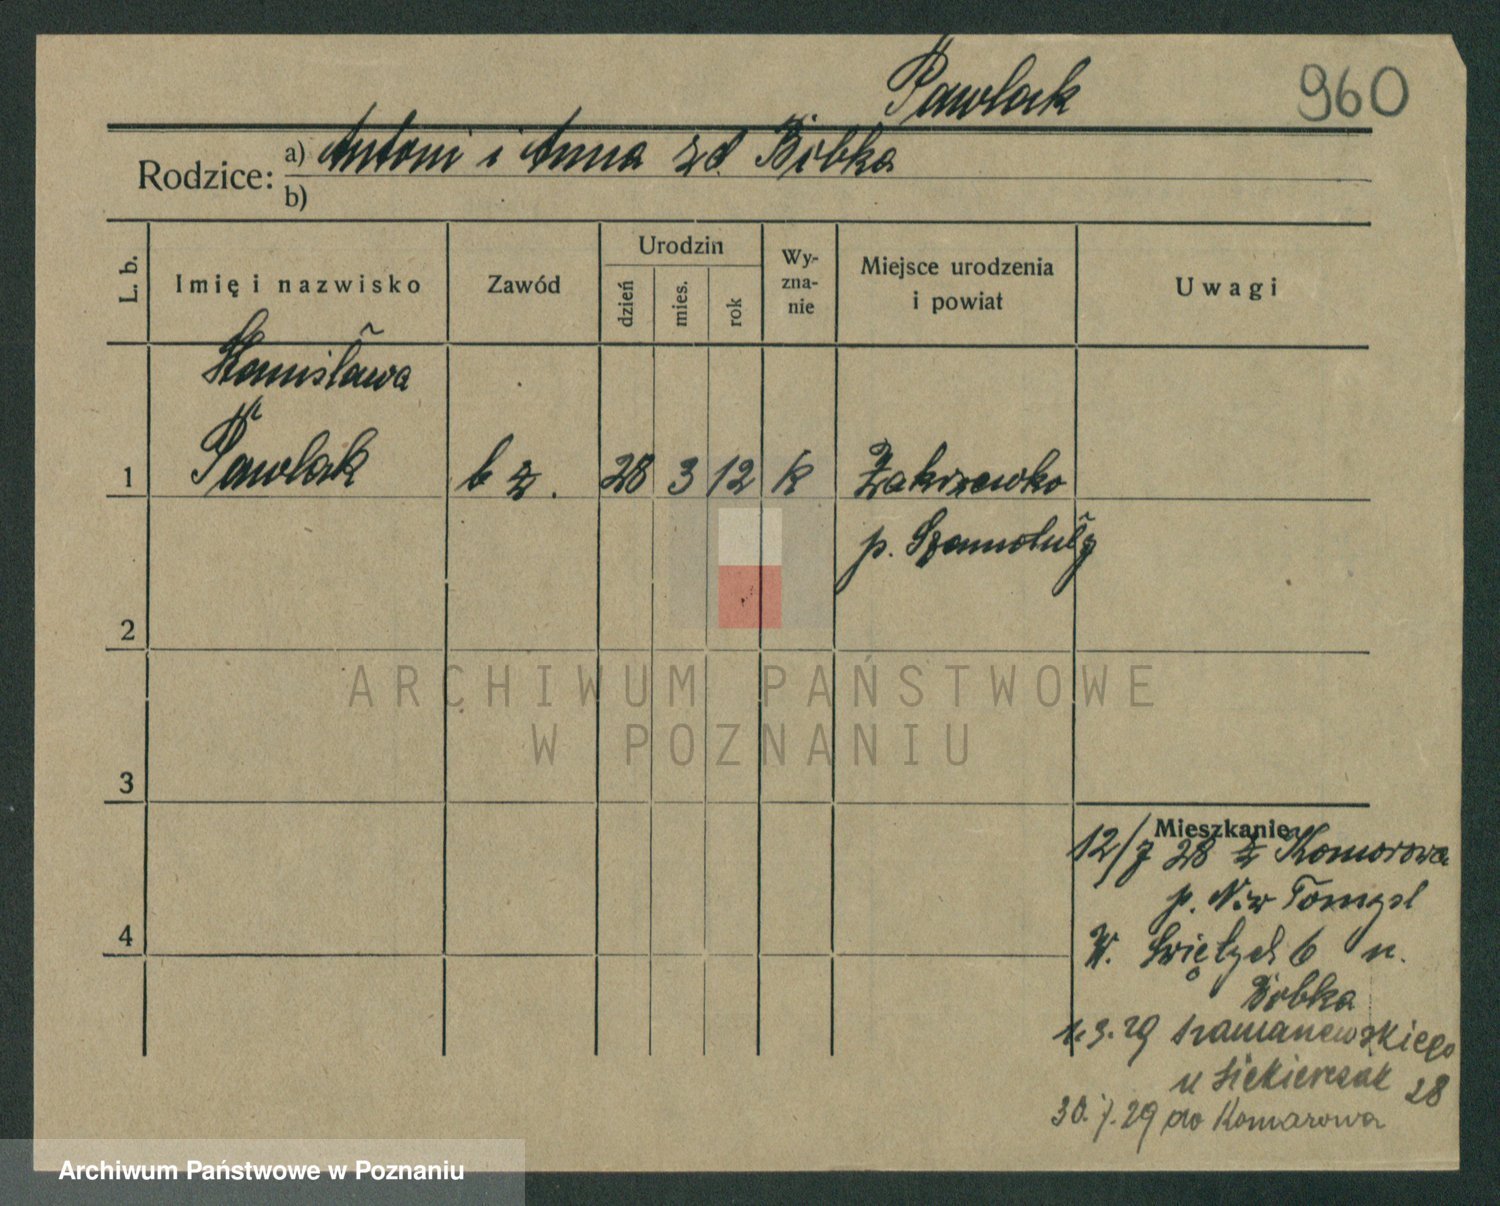 Pawlak
960
Rodzice: a) Antoni i Anna zd. Bibka
b)
L. b. Imię i nazwisko Zawód Urodzin dzień mies. rok Wyznanie Miejsce urodzenia i powiat Uwagi
Stanisława
1 Pawlak b z. 28 3 12 k Zakrzewko
p. Szamotuły
2
3
4
Mieszkanie
12/7 28 z Komorowa
p. N.w Tomysl
W. 6 u.
Bibka
1.3.29 Szamanewskiego
u Siekierczak 28
30.7.29 do Komarowa
ARCHIWUM PAŃSTWOWE
W POZNANIU
Archiwum Państwowe w Poznaniu